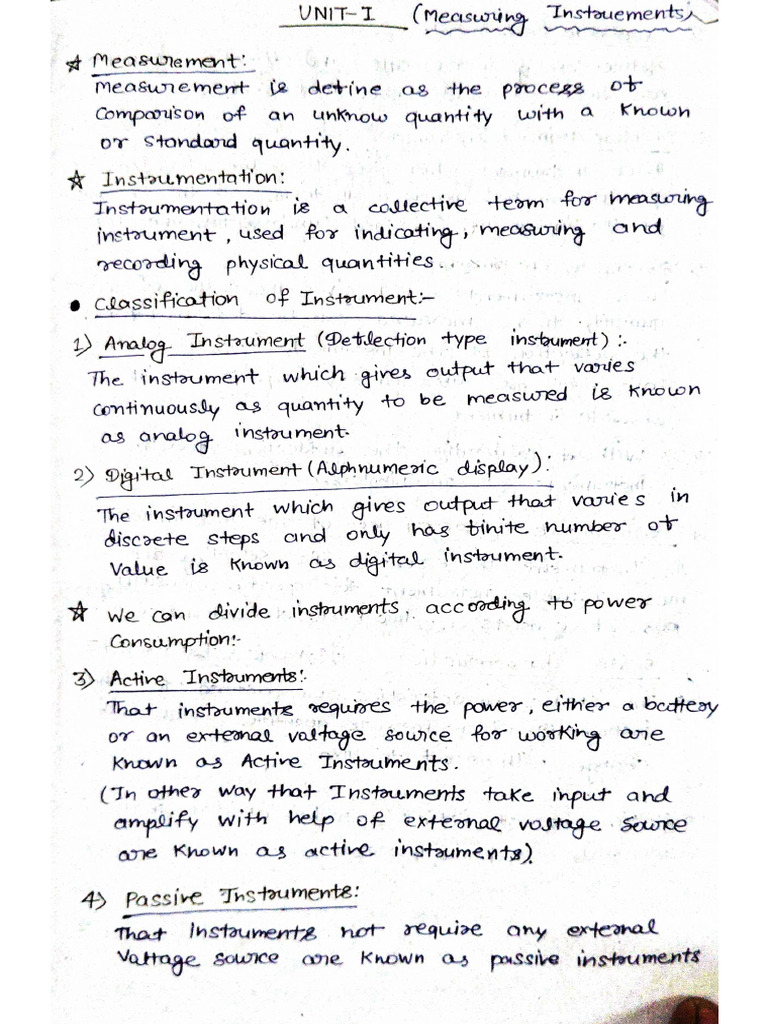 UNIT-I (Measuring Instruements)
☆ Measurement:
Measurement is define as the process of
Comparison of an unknow quantity with a known
or standard quantity.
☆ Instrumentation:
Instrumentation is a collective term for measuring
instrument, used for indicating, measuring and
recording physical quantities.
• Classification of Instrument:-
1) Analog Instrument (Deflection type instrument):-
The instrument which gives output that varies
continuously as quantity to be measured is known
as analog instrument.
2) Digital Instrument (Alphnumeric display):
The instrument which gives output that varies in
discrete steps and only has finite number of
value is known as digital instrument.
☆ We can divide instruments, according to power
Consumption:-
3) Active Instruments:-
That instruments requires the power, either a battery
or an external valtage source for working are
known as Active Instruments.
(In other way that Instruments take input and
amplify with help of external voltage source
are known as active instruments).
4) Passive Instruments:
That Instruments not require any external
Valtage source are known as passive instruments